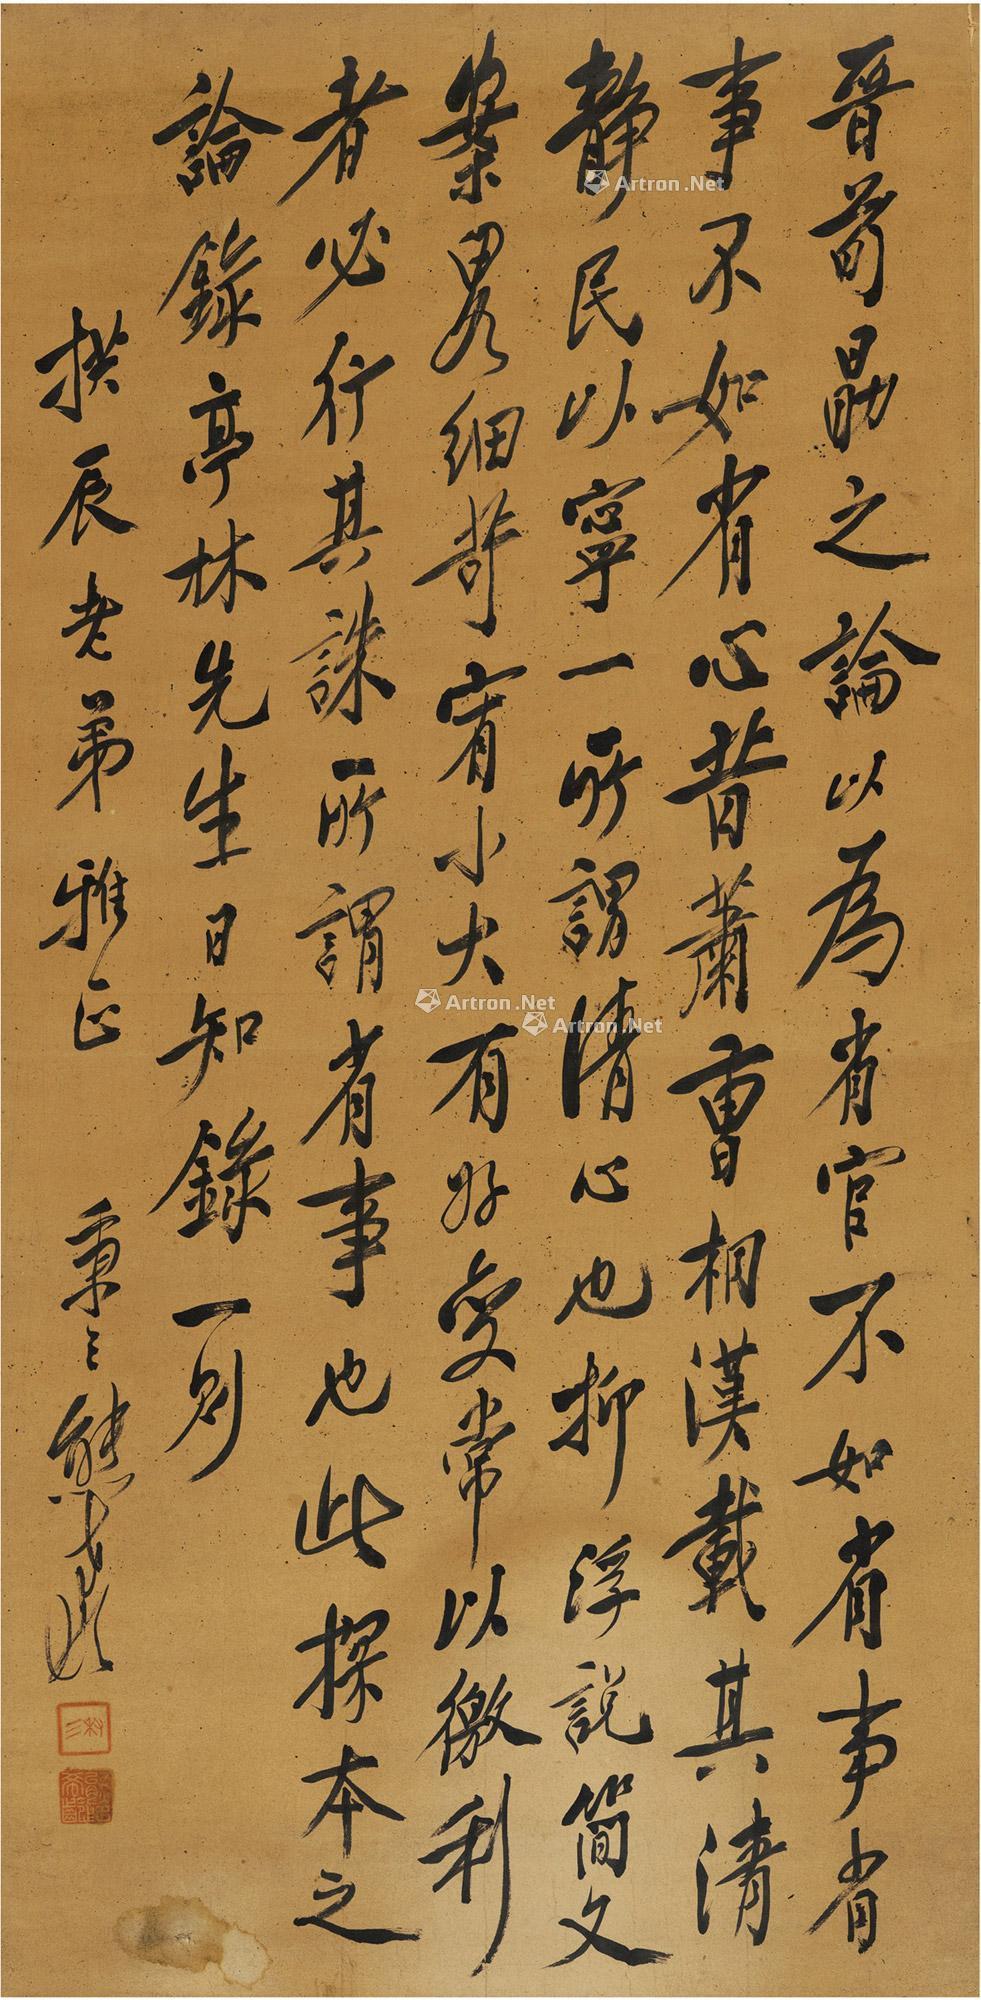 晉荀勗之論以為省官不如省事省
事不如省心昔蕭曹相漢載其清
靜民以寧一所謂清心也抑浮說簡文
案畧細苛宥小失有好變常以徼利
者必行其誅所謂省事也此探本之
論錄亭林先生日知錄一則
揆辰老弟雅正
秉三熊希齡
Artron.Net
Artron.Net
Artron.Net